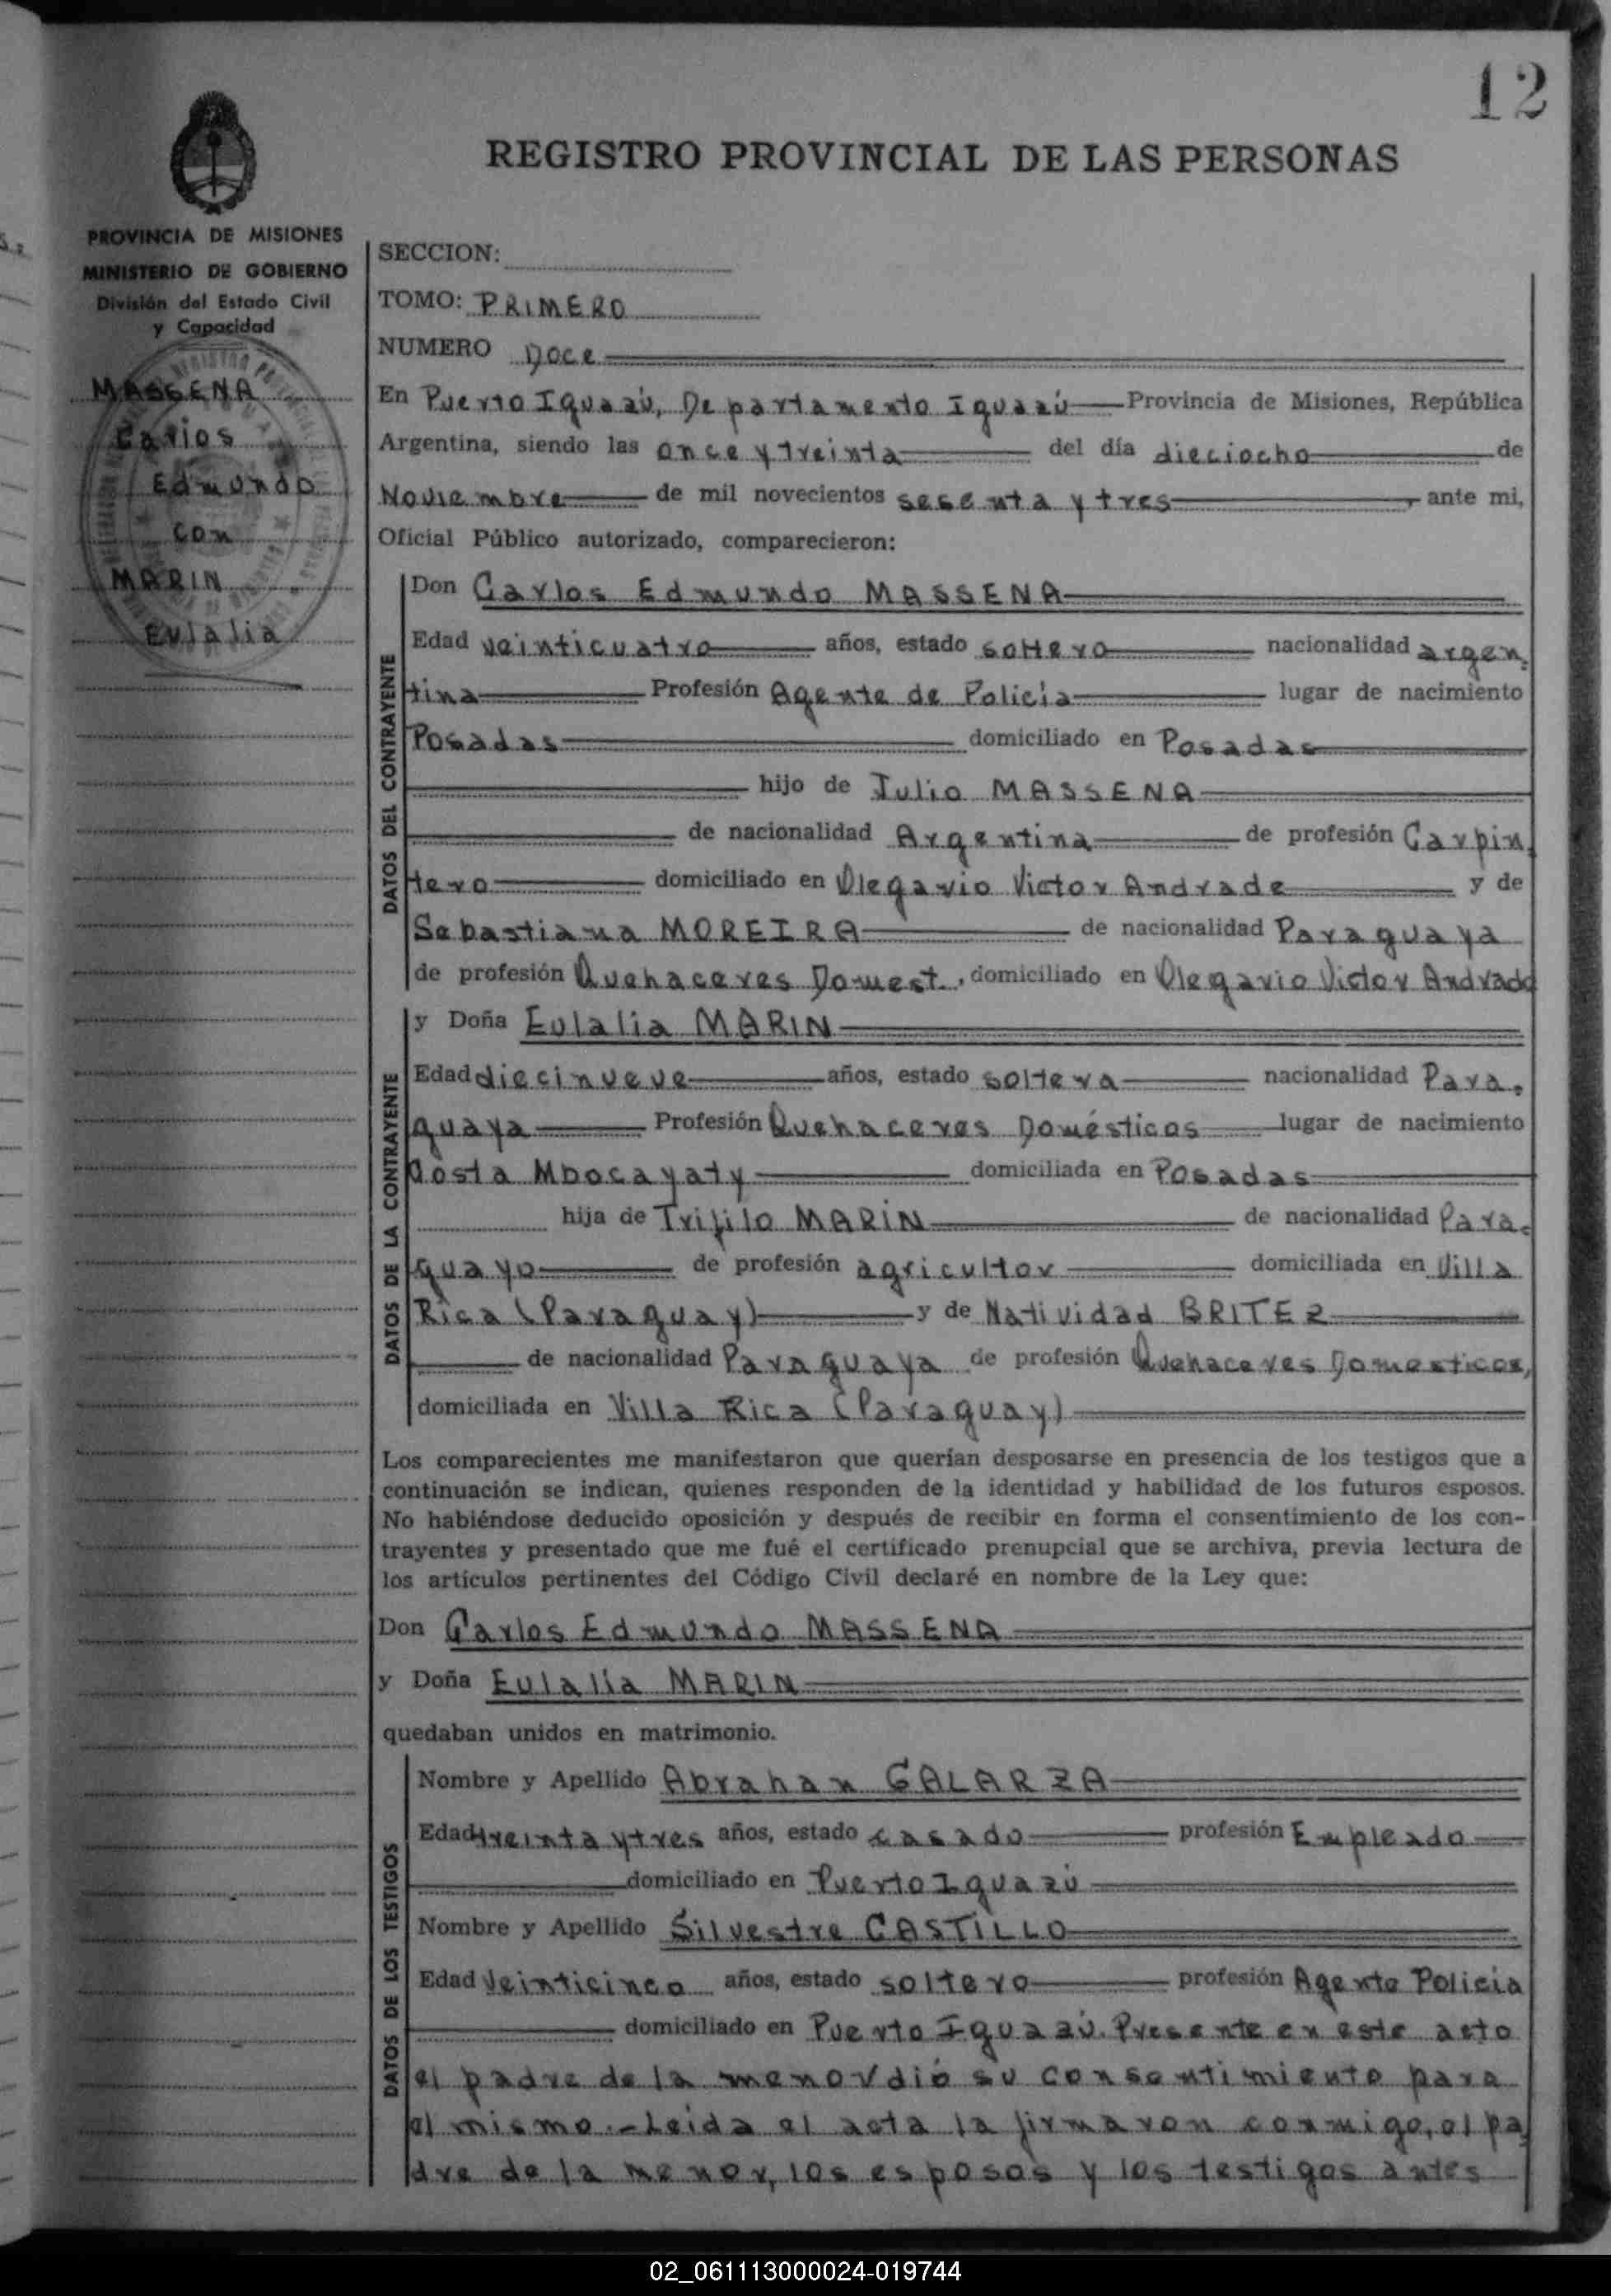 12
REGISTRO PROVINCIAL DE LAS PERSONAS
PROVINCIA DE MISIONES
MINISTERIO DE GOBIERNO
División del Estado Civil
y Capacidad
MASSENA
Carlos
Edmundo
con
MARIN
Eulalia
SECCION:
TOMO: PRIMERO
NUMERO Doce
En Puerto Iguazú, Departamento Iguazú Provincia de Misiones, República
Argentina, siendo las once y treinta del día dieciocho de
Noviembre de mil novecientos sesenta y tres, ante mi,
Oficial Público autorizado, comparecieron:
DATOS DEL CONTRAYENTE
Don Carlos Edmundo MASSENA
Edad veinticuatro años, estado soltero nacionalidad argen-
tina Profesión Agente de Policía lugar de nacimiento
Posadas domiciliado en Posadas
hijo de Julio MASSENA
de nacionalidad Argentina de profesión Carpin-
tero domiciliado en Olegario Victor Andrade y de
Sebastiana MOREIRA de nacionalidad Paraguaya
de profesión Quehaceres Domest., domiciliado en Olegario Victor Andrade
DATOS DE LA CONTRAYENTE
y Doña Eulalia MARIN
Edad diecinueve años, estado soltera nacionalidad Para-
guaya Profesión Quehaceres Domésticos lugar de nacimiento
Costa Mbocayaty domiciliada en Posadas
hija de Trifilo MARIN de nacionalidad Para-
guayo de profesión agricultor domiciliada en Villa
Rica (Paraguay) y de Natividad BRITEZ
de nacionalidad Paraguaya de profesión Quehaceres Domesticos,
domiciliada en Villa Rica (Paraguay)
Los comparecientes me manifestaron que querían desposarse en presencia de los testigos que a
continuación se indican, quienes responden de la identidad y habilidad de los futuros esposos.
No habiéndose deducido oposición y después de recibir en forma el consentimiento de los con-
trayentes y presentado que me fué el certificado prenupcial que se archiva, previa lectura de
los artículos pertinentes del Código Civil declaré en nombre de la Ley que:
Don Carlos Edmundo MASSENA
y Doña Eulalia MARIN
quedaban unidos en matrimonio.
DATOS DE LOS TESTIGOS
Nombre y Apellido Abrahan GALARZA
Edad treinta y tres años, estado casado profesión Empleado
domiciliado en Puerto Iguazú
Nombre y Apellido Silvestre CASTILLO
Edad veinticinco años, estado soltero profesión Agente Policía
domiciliado en Puerto Iguazú. Presente en este acto
el padre de la menor dió su consentimiento para
el mismo.- Leida el acta la firmaron conmigo, el pa-
dre de la menor, los esposos y los testigos antes
02_061113000024-019744